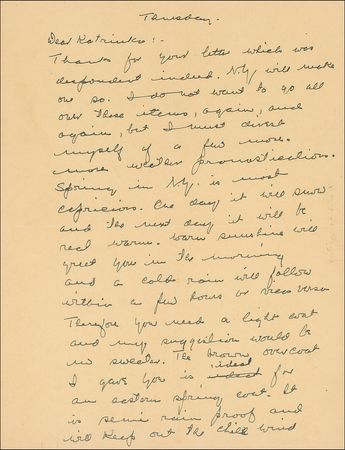 Thursday.
Dear Katrinka:-
Thanks for your letter which was
despondent indeed. N.Y. will make
one so. I do not want to go all
over those items, again, and
again, but I must divest
myself of a few more.
more weather pronostications.
Spring in N.Y. is most
capricious. One day it will snow
and the next day it will be
real warm. Warm sunshine will
greet you in the morning
and a cold rain will follow
within a few hours or vice versa
Therefore you need a light coat
and my suggestion would be
no sweater. The brown overcoat
I gave you is ideal for
an eastern spring coat. It
is semi rain proof and
will keep out the chill wind